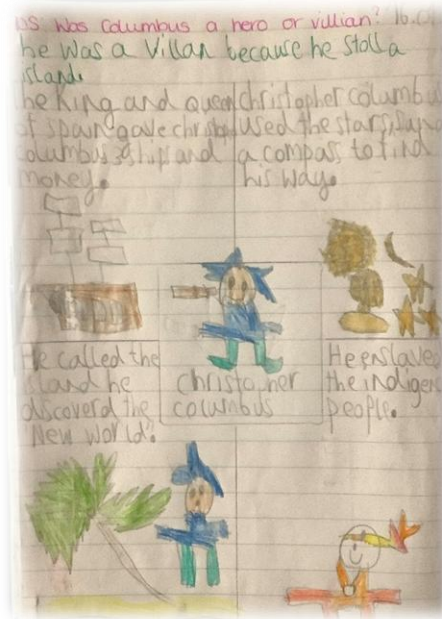 was Columbus a hero or villian? 16.0
he was a Villan because he stoll a
island.
he King and queen
of spain gave christoph
columbus 3 ship and
money.
christopher columbu
used the stars, sun a
a compass to find
his way.
He called the
island he
discoverd the
"New World".
Christopher
columbus
He enslave
the indigen
people.